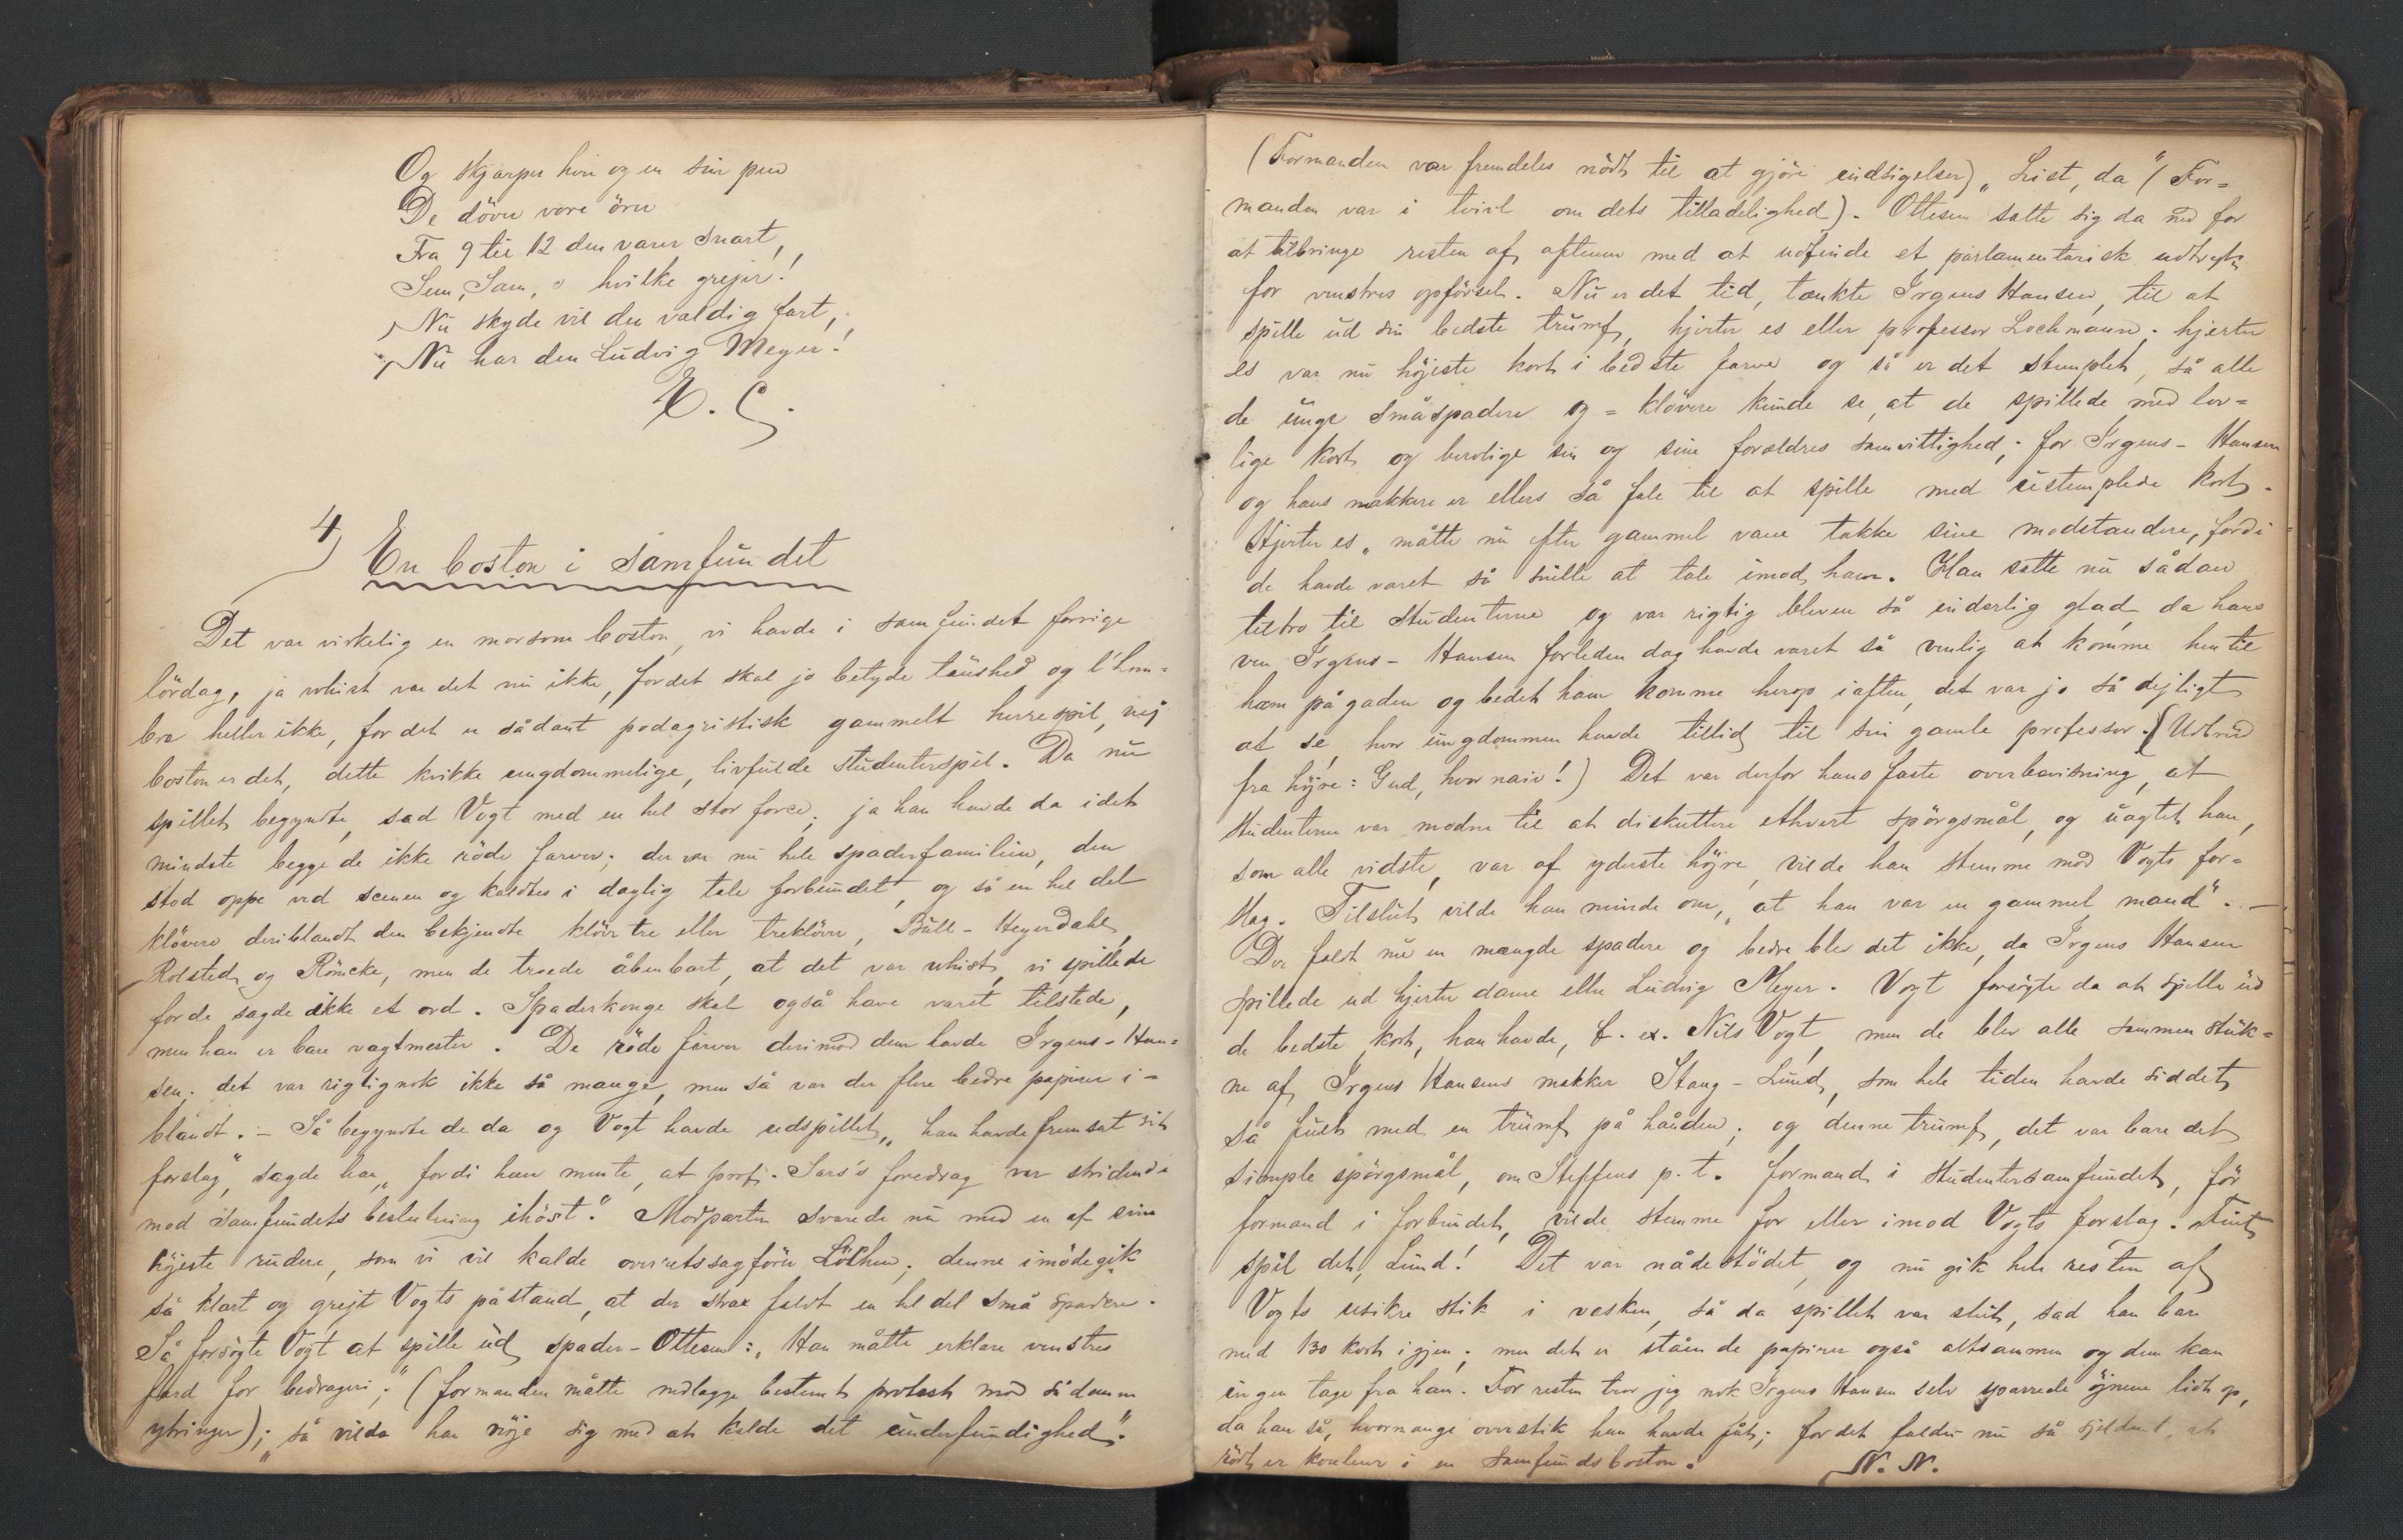 Og skjærper hver og en sin pen
De döve vore ören
Fra 9 til 12 den varer snart,
Sem, Sam, o hvilke grejer!
Nu skyde vil den vældig fart,
Nu har den Ludvig Meyer!
E. C.
4) En boston i samfundet
Det var virkelig en morsom boston, vi havde i samfundet forrige
lördag, ja whist var det nu ikke, for det skal jo betyde taushed og l'hom-
bre heller ikke, for det er sådant podagristisk gammelt herrespil, nej
boston er det, dette kvikke ungdommelige, livfulde studenterspil. Da nu
spillet begyndte, sad Vogt med en hel stor force; ja han havde da i det
mindste begge de ikke röde farver; der var nu hele spaderfamilien, den
stod oppe ved scenen og kaldtes i daglig tale forbundet, og så en hel del
klövere deriblandt den bekjendte klöver tre eller treklöver, Bull-Heyerdahl,
Rolsted og Röncke, men de troede åbenbart, at det var whist, vi spillede
for de sagde ikke et ord. Spaderkonge skal også have været tilstede,
men han er bare vagtmester. De röde farver derimod dem havde Irgens-Han-
sen; det var rigtignok ikke så mange, men så var der flere bedre papirer i-
blandt. – Så begyndte de da og Vogt havde udspillet, „han havde fremsat sit
forslag", sagde han, „fordi han mente, at prof. Sars's foredrag var stridende
mod samfundets beslutning ihöst." Modparten svarede nu med en af sine
höjeste rudere, som vi vil kalde overretssagförer Löchen; denne imödegik
så klart og grejt Vogts påstand, at der strax faldt en hel del små spadere.
Så forsögte Vogt at spille ud spader-Ottesen: „Han måtte erklære venstres
færd for bedrageri;" (formanden måtte nedlægge bestemt protest mod sådanne
ytringer); „så vilde han nöje sig med at kalde det underfundighed."
(Formanden var fremdeles nödt til at gjöre indsigelser) „List, da" (For-
manden var i tvivl om dets tilladelighed). Ottesen satte sig da ned for
at tilbringe resten af aftenen med at udfinde et parlamentarisk udtryk
for venstres opförsel. Nu er det tid, tænkte Irgens Hansen, til at
spille ud sin bedste trumf, hjerter es eller professor Lochmann; hjerter
es var nu höjeste kort i bedste farve og så er det stemplet, så alle
de unge småspadere og =klövere kunde se, at de spillede med lov=
lige kort og berolige sin og sine forældres samvittighed; for Irgens-Hansen
og hans makkere er ellers så fæle til at spille med ustemplede kort.
Hjerter es, måtte nu efter gammel vane takke sine modstandere, fordi
de havde været så snille at tale imod ham. Han satte nu sådan
tiltro til studenterne og var rigtig bleven så inderlig glad, da hans
ven Irgens-Hansen forleden dag havde været så venlig at komme hen til
ham på gaden og bedet ham komme herop iaften, det var jo så dejligt
at se, hvor ungdommen havde tillid til sin gamle professor. (Udbrud
fra höjre: Gud, hvor naiv!) Det var derfor hans faste overbevisning, at
studenterne var modne til at diskuttere ethvert spörgsmål, og uagtet han,
som alle vidste, var af yderste höjre, vilde han stemme mod Vogts for=
slag. Tilslut vilde han minde om, „at han var en gammel mand". –
Der faldt nu en mængde spadere og bedre blev det ikke, da Irgens Hansen
spillede ud hjerter dame eller Ludvig Meyer. Vogt forsögte da at spille ud
de bedste kort, han havde, f. ex. Nils Vogt, men de blev alle sammen stuk=
ne af Irgens Hansens makker Stang-Lund, som hele tiden havde siddet
så fult med en trumf på hånden; og denne trumf, det var bare det
simple spörgsmål, om Steffens p. t. formand i studentersamfundet, för
formand i forbundet, vilde stemme for eller imod Vogts forslag. Fint
spil det, Lund! Det var nådestödet, og nu gik hele resten af
Vogts usikre stik i vasken, så da spillet var slut, sad han bare
med 130 kort igjen; men det er stående papirer også altsammen og dem kan
ingen tage fra ham. For resten tror jeg nok Irgens Hansen selv sparrede öjnene lidt op,
da han så, hvormange overstik han havde fåt; for det falder nu så sjeldent, at
rödt er kouleur i en samfundsboston.
N. N.